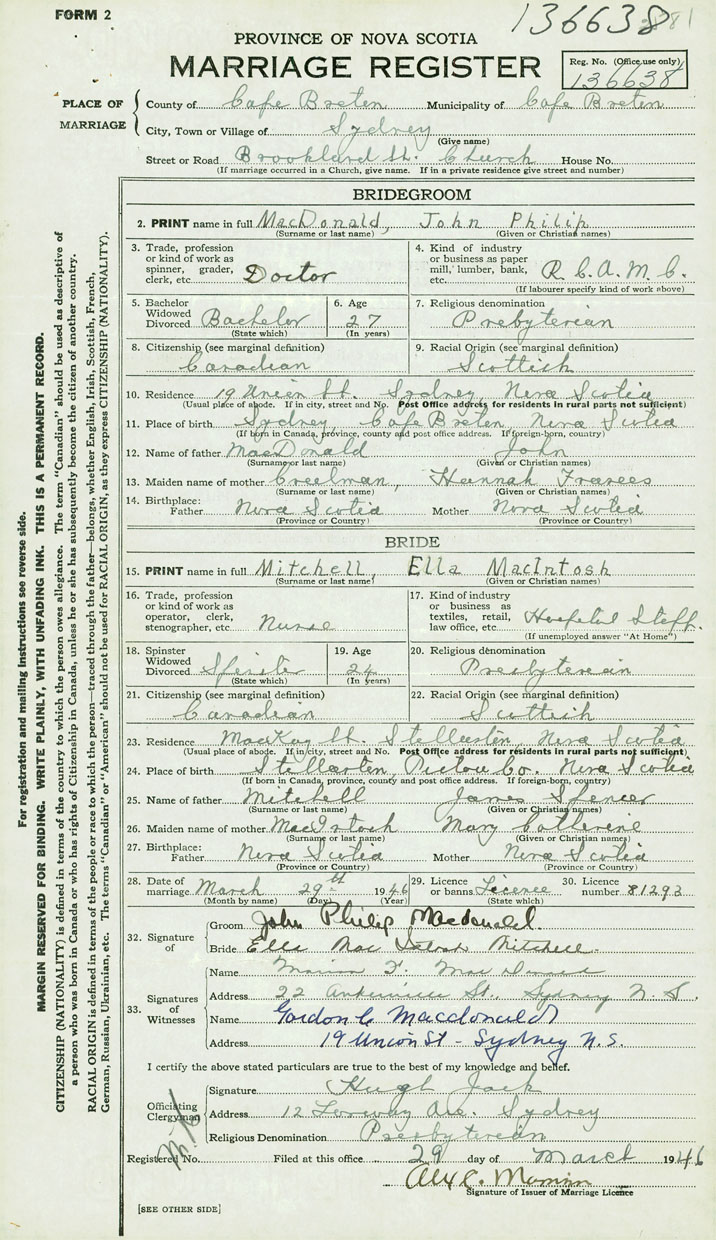 FORM 2
136638
PROVINCE OF NOVA SCOTIA
MARRIAGE REGISTER
Reg. No. (Office use only)
136638
PLACE OF MARRIAGE
County of Cape Breton Municipality of Cape Breton
City, Town or Village of Sydney
(Give name)
Street or Road Brookland St. Church House No.
(If marriage occurred in a Church, give name. If in a private residence give street and number)
BRIDEGROOM
2. PRINT name in full MacDonald, John Philip
(Surname or last name) (Given or Christian names)
3. Trade, profession or kind of work as spinner, grader, clerk, etc. Doctor
4. Kind of industry or business as paper mill, lumber, bank, etc. R.C.A.M.C.
(If labourer specify kind of work above)
5. Bachelor Widowed Divorced Bachelor
(State which)
6. Age 27
(In years)
7. Religious denomination Presbyterian
8. Citizenship (see marginal definition) Canadian
9. Racial Origin (see marginal definition) Scottish
10. Residence 19 Union St. Sydney, Nova Scotia
(Usual place of abode. If in city, street and No. Post Office address for residents in rural parts not sufficient)
11. Place of birth Sydney, Cape Breton, Nova Scotia
(If born in Canada, province, county and post office address. If foreign-born, country)
12. Name of father MacDonald John
(Surname or last name) (Given or Christian names)
13. Maiden name of mother Creelman, Hannah Frances
(Surname or last name) (Given or Christian names)
14. Birthplace: Father Nova Scotia Mother Nova Scotia
(Province or Country) (Province or Country)
BRIDE
15. PRINT name in full Mitchell, Ella MacIntosh
(Surname or last name) (Given or Christian names)
16. Trade, profession or kind of work as operator, clerk, stenographer, etc. Nurse
17. Kind of industry or business as textiles, retail, law office, etc. Hospital Staff.
(If unemployed answer "At Home")
18. Spinster Widowed Divorced Spinster
(State which)
19. Age 24
(In years)
20. Religious denomination Presbyterian
21. Citizenship (see marginal definition) Canadian
22. Racial Origin (see marginal definition) Scottish
23. Residence MacKay St. Stellarton, Nova Scotia
(Usual place of abode. If in city, street and No. Post Office address for residents in rural parts not sufficient)
24. Place of birth Stellarton, Pictou Co. Nova Scotia
(If born in Canada, province, county and post office address. If foreign-born, country)
25. Name of father Mitchell James Spencer
(Surname or last name) (Given or Christian names)
26. Maiden name of mother MacIntosh Mary Catherine
(Surname or last name) (Given or Christian names)
27. Birthplace: Father Nova Scotia Mother Nova Scotia
(Province or Country) (Province or Country)
28. Date of marriage March 29th 1946
(Month by name) (Day) (Year)
29. Licence or banns Licence
(State which)
30. Licence number 81293
32. Signature of
Groom John Philip Macdonald.
Bride Ella MacIntosh Mitchell.
33. Signatures of Witnesses
Name Marion F.
Address 22 St., Sydney N.S.
Name Gordon C Macdonald
Address 19 Union St - Sydney N.S.
I certify the above stated particulars are true to the best of my knowledge and belief.
Officiating Clergyman
Signature Hugh Jack
Address 12 Ave. Sydney
Religious Denomination Presbyterian
Registered No. Filed at this office 29 day of March 1946
Alex C.
Signature of Issuer of Marriage Licence
[SEE OTHER SIDE]
For registration and mailing instructions see reverse side.
MARGIN RESERVED FOR BINDING. WRITE PLAINLY, WITH UNFADING INK. THIS IS A PERMANENT RECORD.
CITIZENSHIP (NATIONALITY) is defined in terms of the country to which the person owes allegiance. The term "Canadian" should be used as descriptive of
a person who was born in Canada or who has rights of Citizenship in Canada, unless he or she has subsequently become the citizen of another country.
RACIAL ORIGIN is defined in terms of the people or race to which the person—traced through the father—belongs, whether English, Irish, Scottish, French,
German, Russian, Ukrainian, etc. The terms "Canadian" or "American" should not be used for RACIAL ORIGIN, as they express CITIZENSHIP (NATIONALITY).